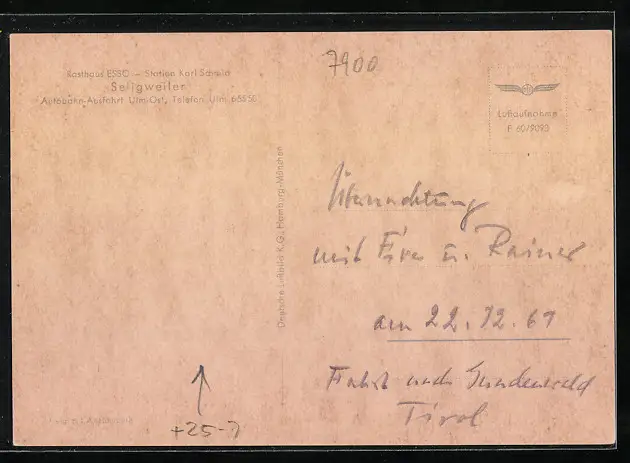 7900
Rasthaus ESSO – Station Karl Schmid
Seligweiler
Autobahn-Ausfahrt Ulm-Ost, Telefon Ulm
Luftaufnahme
F 60/9093
Deutsche Luftbild K.G., Hamburg-München
Übernachtung
mit Eva u. Rainer
am 22.12.69
Fahrt nach
Tirol
+25-7